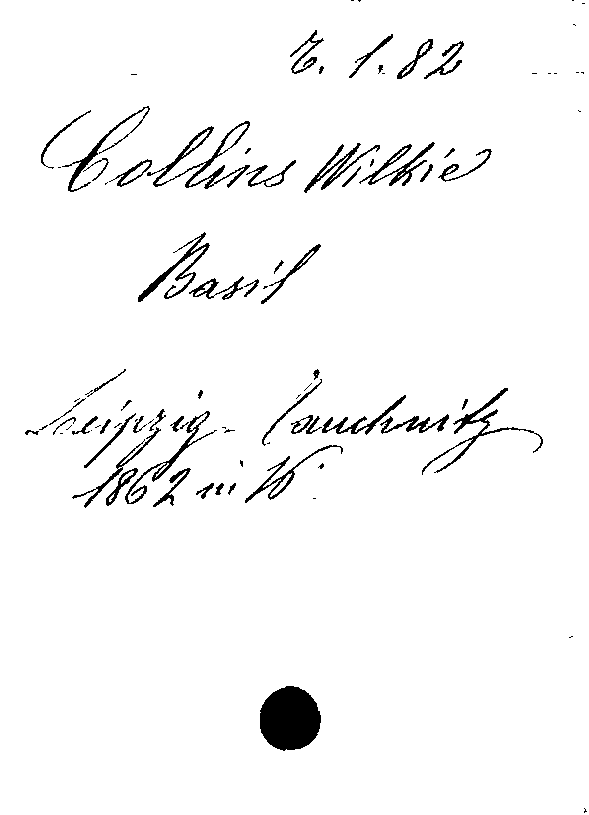 7. 1. 82
Collins Wilkie
Basil
Leipzig - Tauchnitz
1862 in 16°